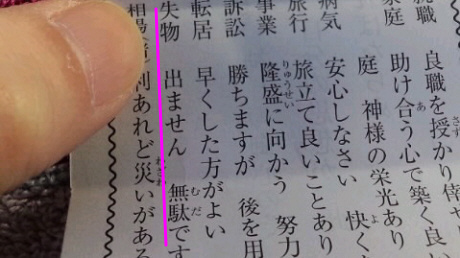 就職 良職を授かり倖
家庭 助け合う心で築く良い
庭 神様の栄光あり 快く
病気 安心しなさい
旅行 旅立て良いことあり
事業 隆盛に向かう 努力
訴訟 勝ちますが 後を用
転居 早くした方がよい
失物 出ません 無駄です
相場 利あれど災いがある